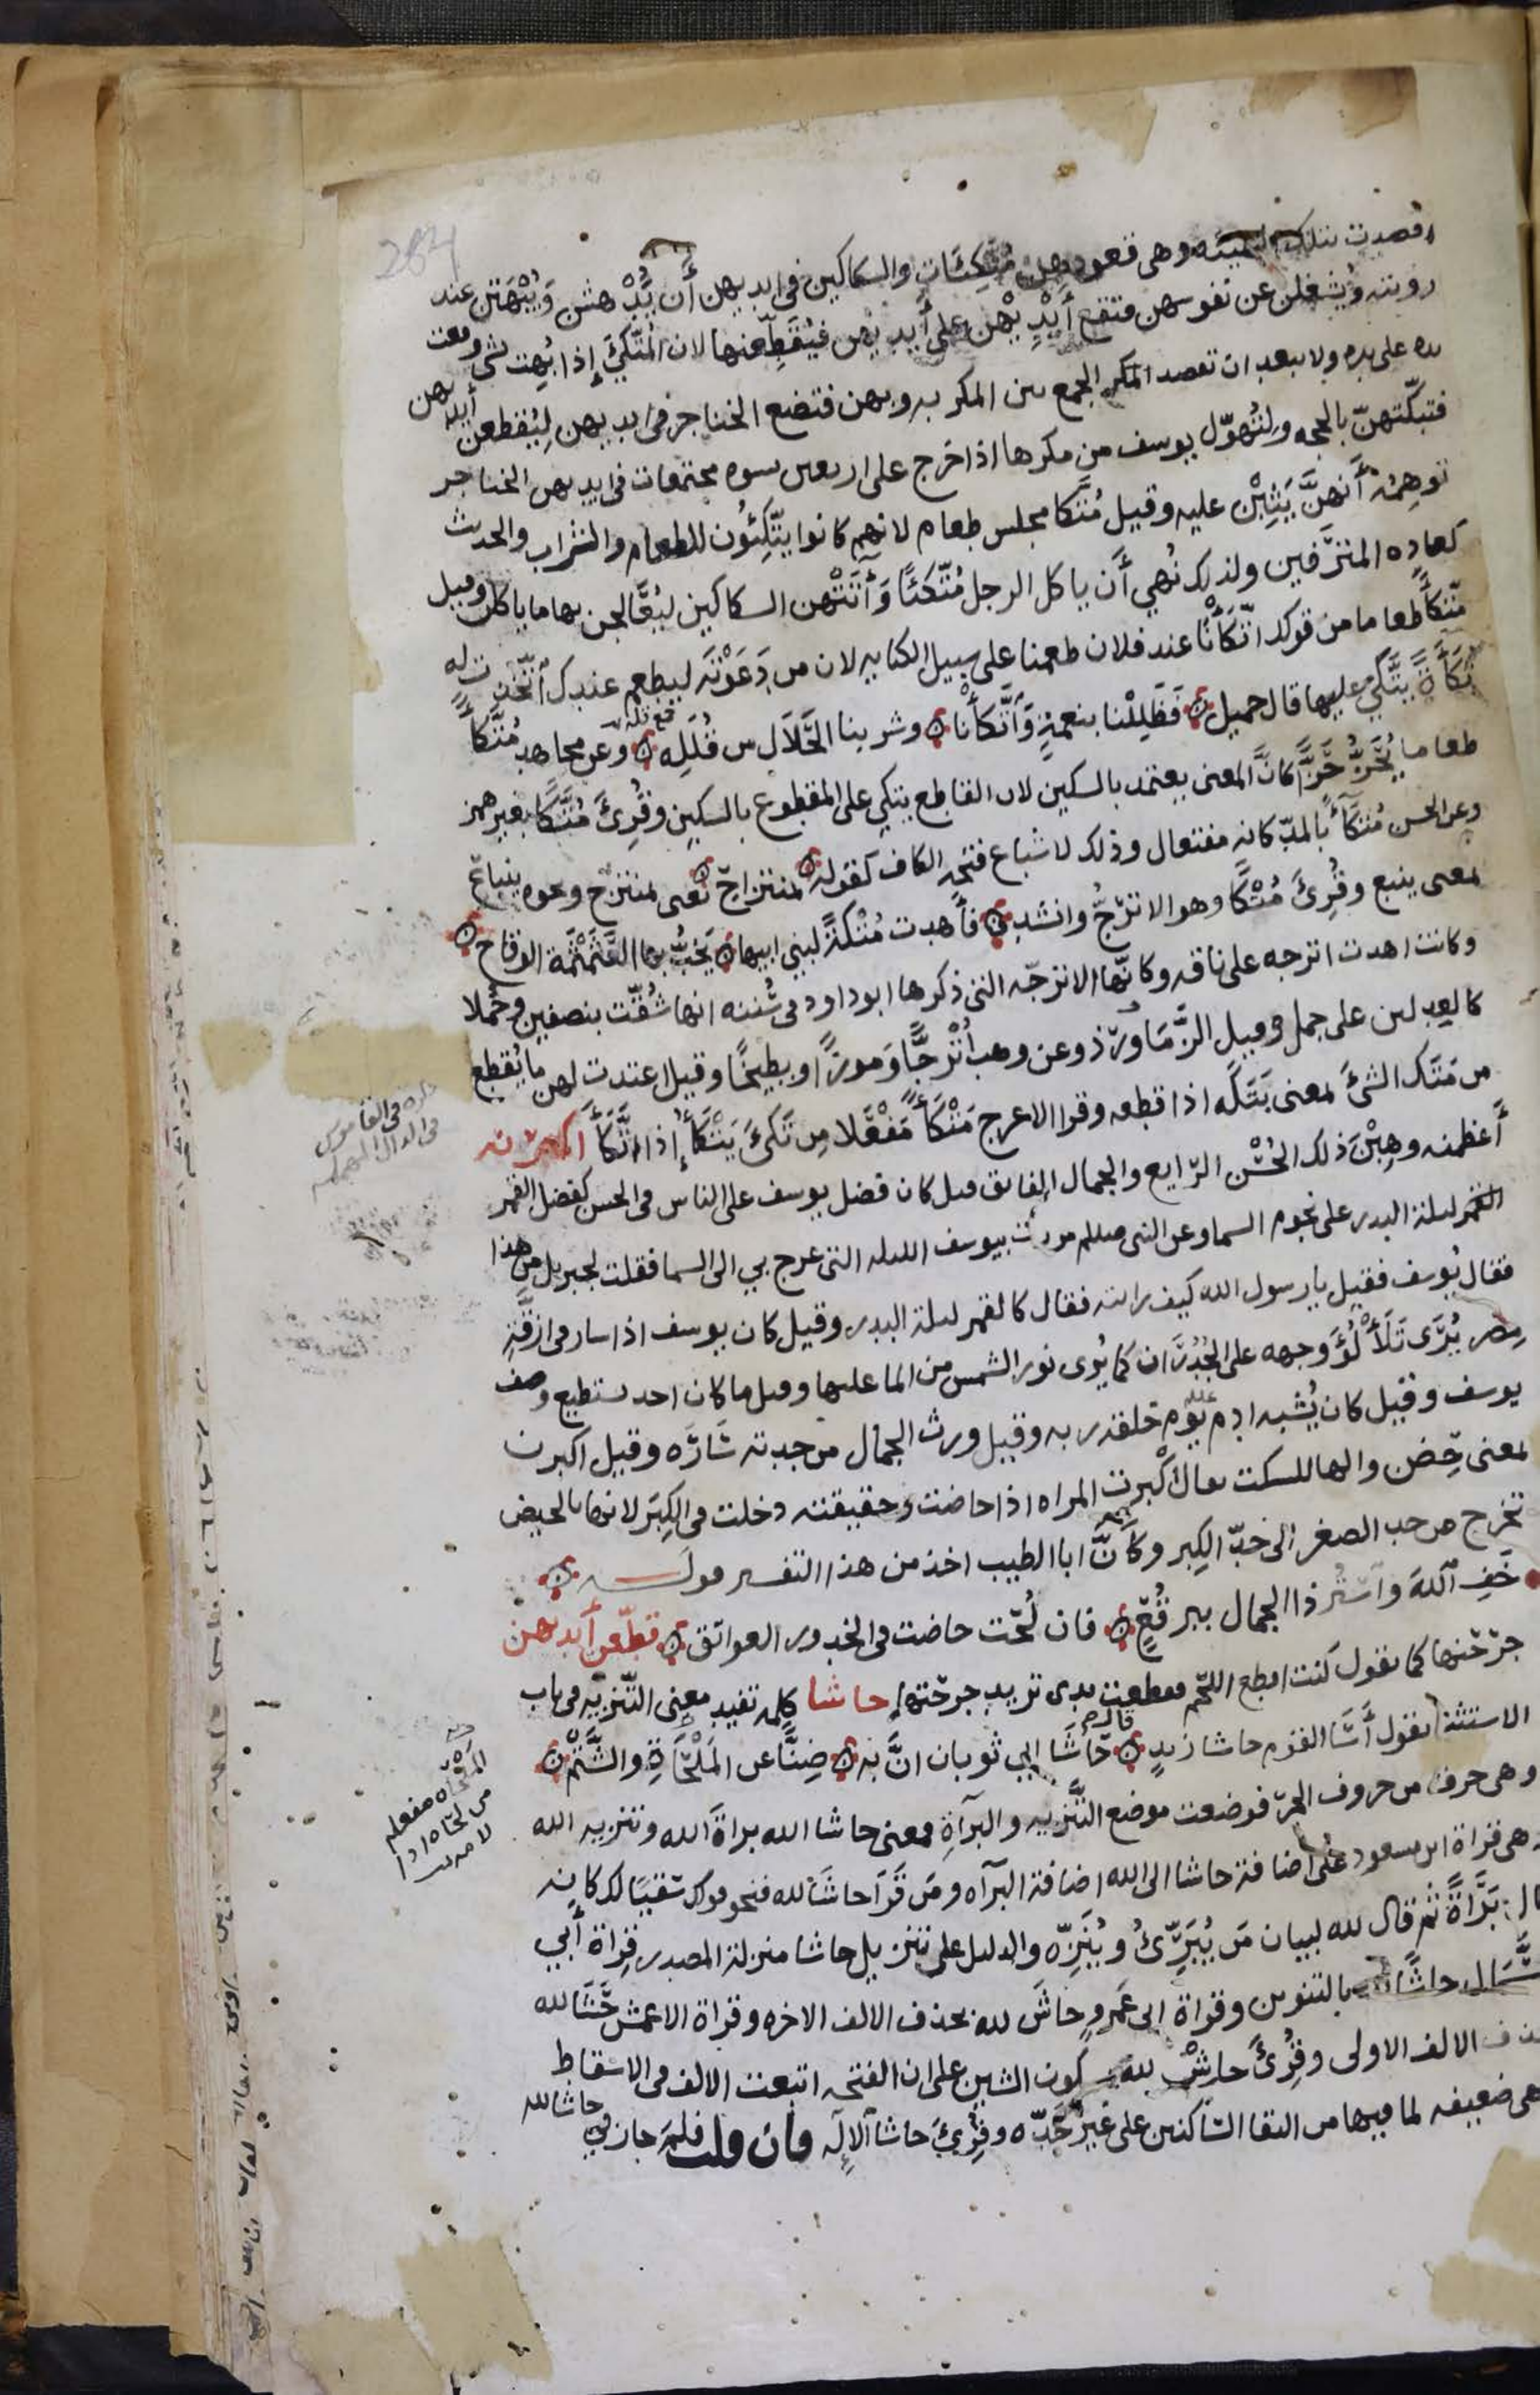 قصدت بتلك الهيئة وهى قعودهن مُتّكِئَات والسكاكين فى ايديهن أَن يَدْهشن وَيُبْهَتن عند
رويته ويُشغلن عن نفوسهن فتقع أَيْدِيْهن على أَيديهن فيُقَطِّعنها لان المُتّكِئَ إذا بُهِت لشى وقعت
يده على يده ولا يبعد ان تقصد الجمع بين المكر به وبهن فتضع الخناجر فى ايديهن لِيُقطعن أيديهن
فتبكّتهنّ بالحجه ولتُهوّل يوسف من مكرها اذا خرج على اربعين نسوه مجتمعات فى ايديهن الخناجر
توهمه أَنهنَّ يَثِبْن عليه وقيل مُتَّكَا مجلس طعام لانهم كانوا يتّكِئُون للطعام والشراب والحديث
كعاده المتَرَفين ولذلك نُهي أَن ياكل الرجل مُتّكئًا وَآتَتْهن السكاكين ليُعَالجن بها ما ياكلن وقيل
مّتكأً طعاما من قولك اتّكَأْنَا عند فلان طعمنا على سبيل الكنايه لان من دَعَوْتَه ليطعم عندك اتّخَذت له
تُكَأَةً يتَّكِئُ عليها قال جميل فَظَلِلْنا بنعمةٍ وَاتَّكَأْنا وشربنا الحَلَال من قُلَلِه وعن مجاهد مُتّكأً
طعاما يُحَزُّ حَزًّا كانَّ المعنى يعتمد بالسكين لان القاطع يتكي على المقطوع بالسكين وقُرِئَ مُتَّكًا بغير همز
وعن الحسن مُتّكَآءً بالمدّ كانه مفتعال وذلك لاشباع فتحه الكاف كقوله بمنتزاح بمعنى بمنتزح ونحوه ينباع
بمعنى ينبع وقُرِئَ مُتْكًا وهو الاترُجّ وانشد فأهدت مُتْكَةً لبني ابيها تخُبُّ بها العَثَمْثَمَة الوقاح
وكانت اهدت اترجه على ناقه وكانّها الاترجّه التى ذكرها ابو داود فى سُننه انها شُقّت بنصفين وحُملا
كالعدلين على جمل وقيل الزُّمَاوَرْد وعن وهب أُتْرجًّا وَمَوزًا وبطيخًا وقيل اعتدت لهن ما يُقطع
من مَتَك الشئَ بمعنى بَتَكَه اذا قطعه وقرا الاعرج مَتْكَأً مَفْعَلا مِن تَكِئَ يَتْكَأُ إذا اتَّكَأَ أكبرنه
أَعظمنه وهِبْنَ ذلك الحُسْن الرّايع والجمال الفايق قيل كان فضل يوسف على الناس فى الحسن كفضل القمر
ليلة البدر على نجوم السما وعن النبى صللم مررت بيوسف الليله التى عرج بي الى السما فقلت لجبريل من هذا
فقال يُوسف فقيل يا رسول الله كيف رايته فقال كالقمر ليلة البدر وقيل كان يوسف اذا سار فى ازقّة
مصر يُرَى تَلَأْلُؤُ وجهه على الجُدْرَان كما يُرى نور الشمس من الما عليها وقيل ما كان احد يستطيع وصف
يوسف وقيل كان يُشبه ادم يوم خلقه ربه وقيل ورث الجمال من جدته سَارَه وقيل اكبرن
بمعنى حِضن والها للسكت يقال أَكْبرت المراه اذا حاضت وحقيقته دخلت فى الكِبَر لانها بالحيض
تخرج من حد الصغر الى حدّ الكِبر وكَأَنَّ ابا الطيب اخذ من هذا التفسير قوله
خَفِ اللهَ واسْتُر ذا الجمال ببرقُعٍ فان لُحْت حاضت فى الخدور العواتق قطّعن أيديهن
جرّحنها كما تقول كنت اقطع اللحم فقطعت يدى تريد جرحتها حاشا كلمه تفيد معنى التّنزيه فى باب
الاستثنا تقول أَسَا القوم حاشا زيدٍ قال حَاشَا ابي ثوبان انَّ به ضِنًّا عن المَلْحَاةِ والشَّتْمْ
وهى حرف من حروف الجرّ فوضعت موضع التَّنزيه والبرآةِ فمعنى حاشا الله براةَ الله وتنزيه الله
وهى قراة ابن مسعود على اضافة حاشا الى الله اضافة البرآه ومَن قَرَا حاشَا لله فنحو قولك سَقيًا لك كانه
قال بَرَاةً ثم قال لله لبيان مَن يُبَرِّئُ ويُنَزِّه والدليل على تنزيل حاشا منزلة المصدر قراة أبي
السَّمَّال حاشًا بالتنوين وقراة ابى عَمرو حاشَ لله بحذف الالف الاخره وقراة الاعمش حَشَا لله
بحذف الالف الاولى وقُرِئَ حاشْ لله بسكون الشين على ان الفتحه اتبعت الالف فى الاسقاط
وهى ضعيفه لما فيها من التقا السّاكنين على غير حَدّه وقُرِئَ حاشا الإله فان قلت فلمَ جاز فى حاشا لله
ذكره فى القاموس
فى الدال المهمله